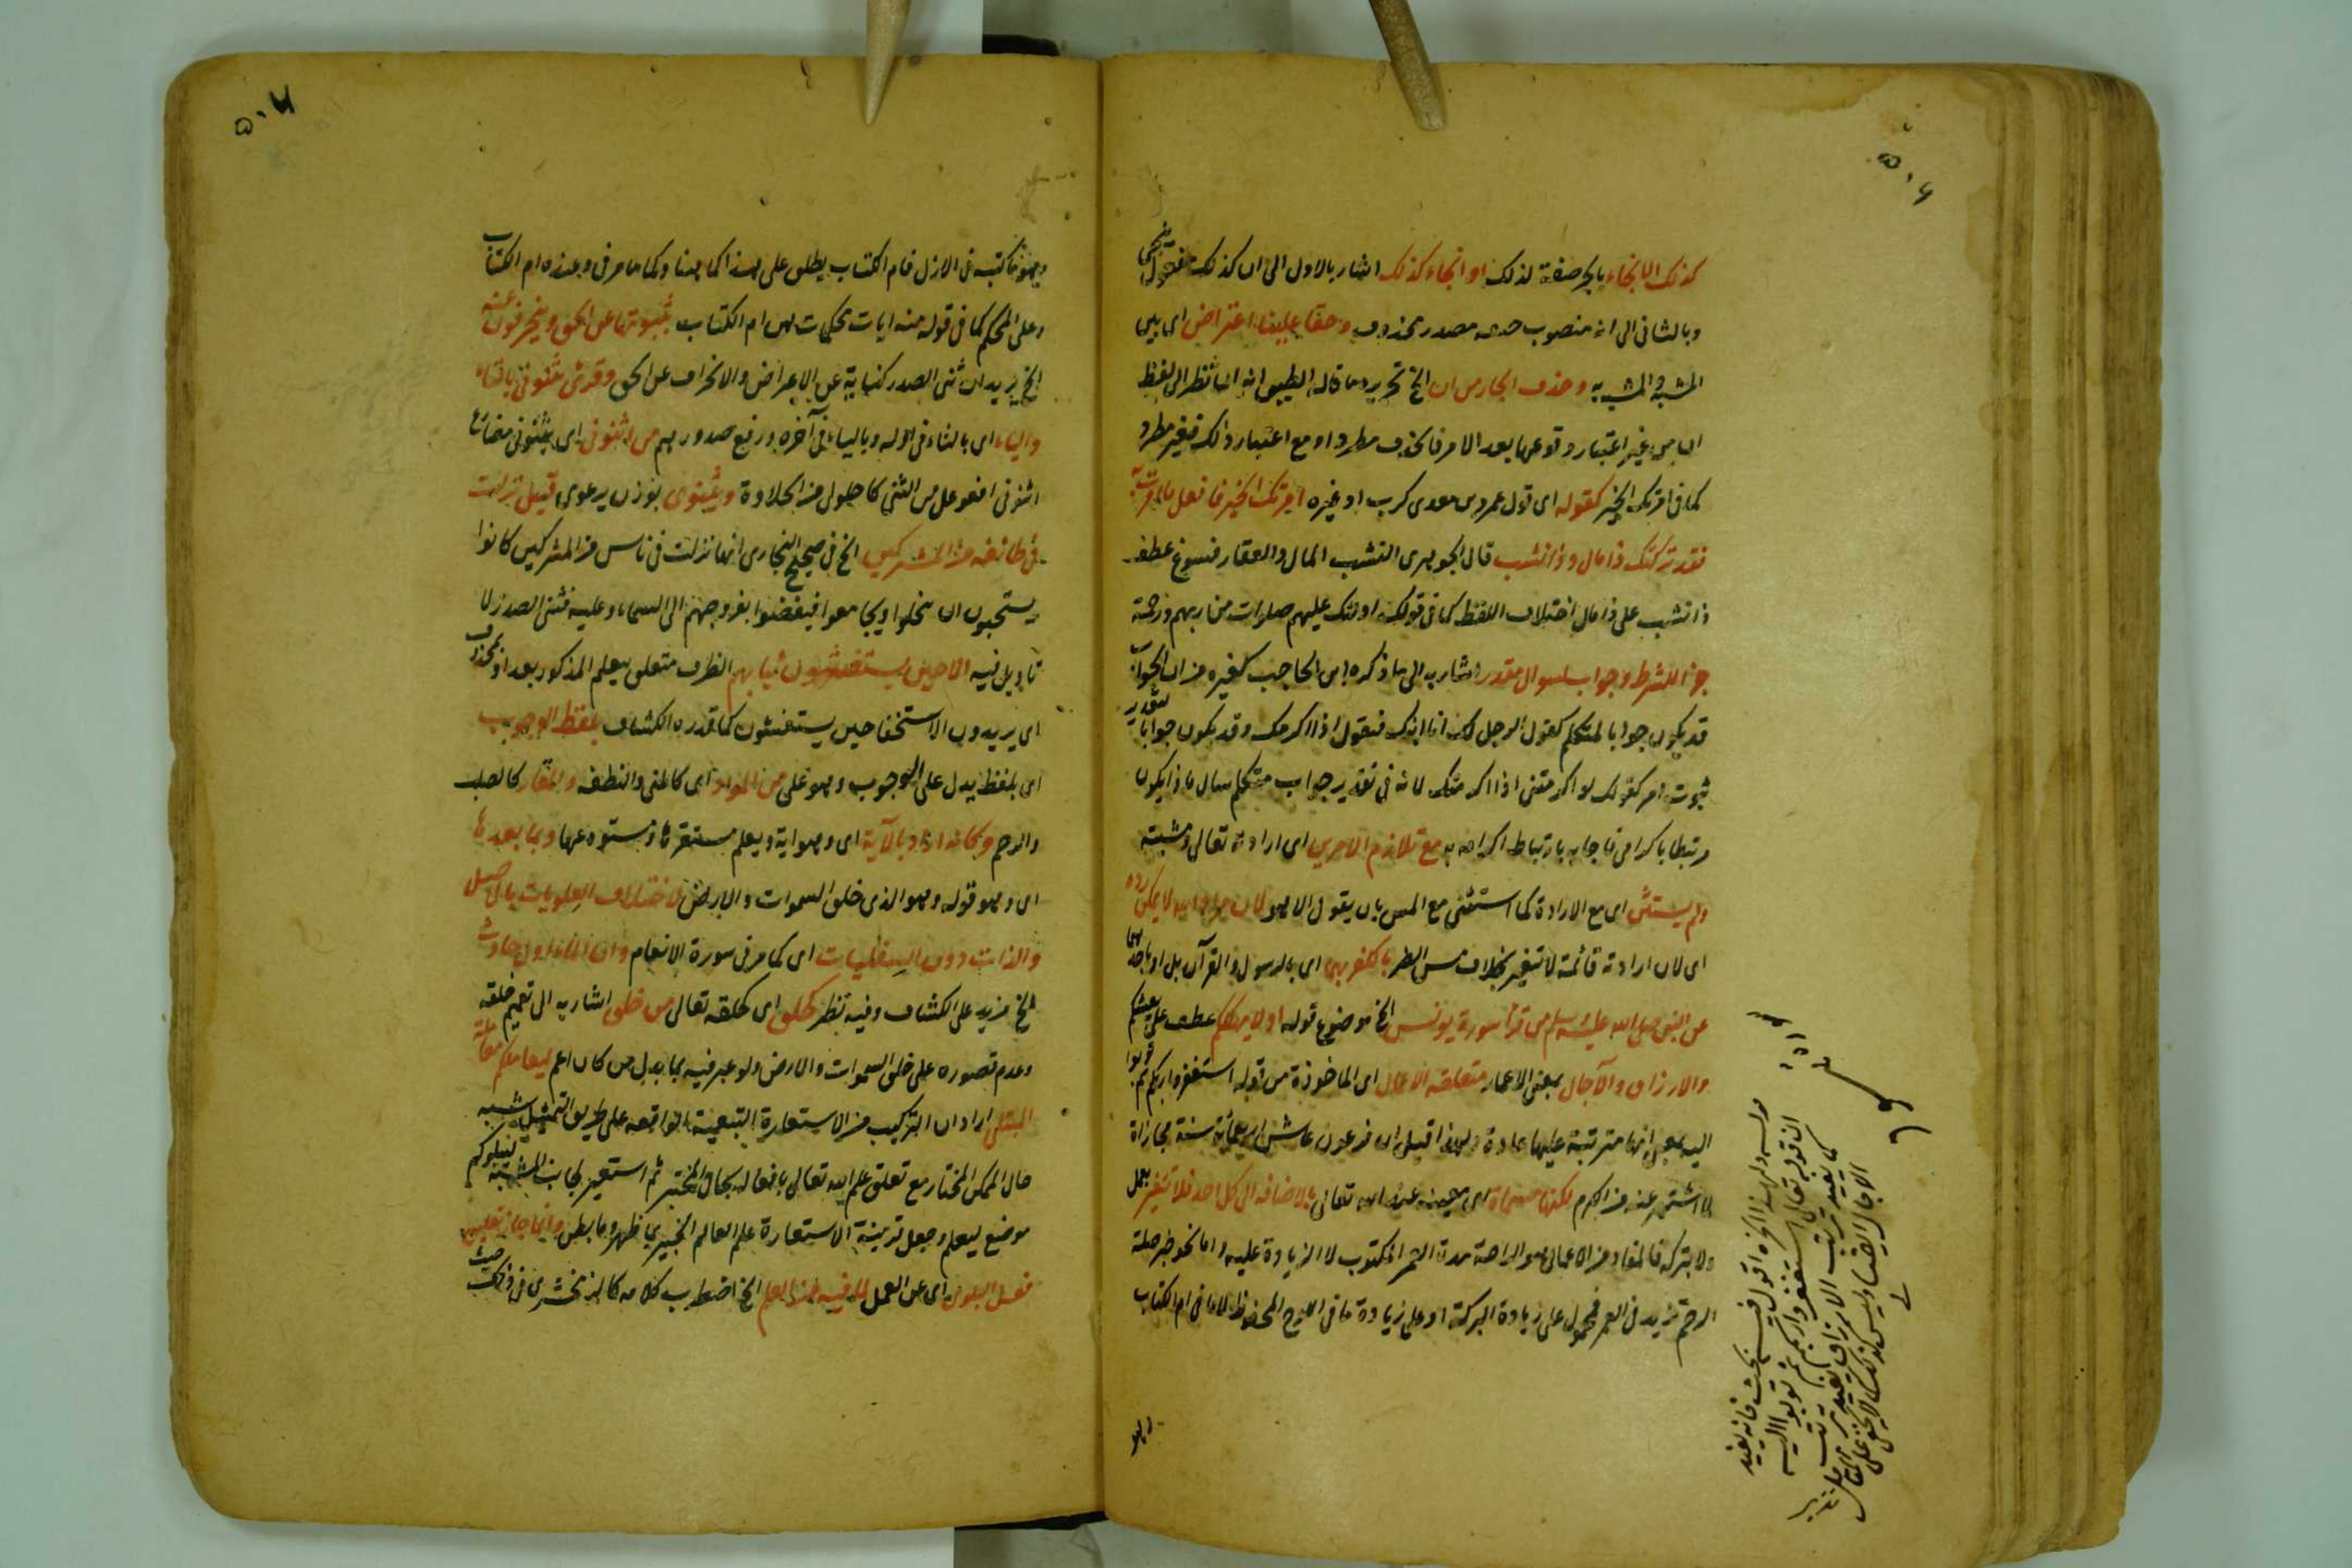 كذلك الانجاء بالجر صفة لذلك او انجاء كذلك اشار بالاول الى ان كذلك مفعول ننجي
وبالثاني الى انه منصوب صفة مصدر محذوف وحقا علينا اعتراض اي بين
المشبه والمشبه به وحذف الجار من ان الخ تحرير ما قاله الطيبي انه ان نظر الى لفظ
ان من غير اعتبار وقوعها بعد الامر فالحذف مطرد او مع اعتبار ذلك فغير مطرد
كما في امرتك الخير كقوله اي قول عمرو بن معدي كرب او غيره امرتك الخير فافعل ما امرت به
فقد تركتك ذا مال وذا نشب قال الجوهري النشب المال والعقار فسوغ عطف
ذا نشب على ذا مال اختلاف اللفظ كما في قولك اولئك عليهم صلوات من ربهم ورحمة
جزا للشرط وجواب لسوال مقدر اشار به الى ما ذكره ابن الحاجب كغيره من ان اذا
قد يكون جوابا لمتكلم كقول الرجل لك انا اتيك فتقول اذا اكرمك وقد يكون جوابا لتقدير
ثبوت امر كقولك لو اكرمتني اذا اكرمتك لانه في تقدير جواب متكلم سال ماذا يكون
مرتبطا باكرامي فاجابه بارتباط اكرامه به مع تلازم الامرين اي ارادته تعالى ومشيته
ولم يستثن اي مع الارادة كما استثنى مع المس بان يقول الا هو لان مراد الله لا يمكن رده
اي لان ارادته قائمة لا تتغير بخلاف مس الضر بالكفر بهما اي بالرسول والقرآن بل او باحدهما
عن النبي صلى الله عليه وسلم من قرأ سورة يونس الخ موضوع قوله او لا يهلككم عطف على يعيشكم
والارزاق والآجال بمعنى الاعمار متعلقة الاعمال اي الماخوذة من قوله استغفروا ربكم ثم توبوا
اليه بمعنى انها مترتبة عليها عادة ولهذا قيل ان فرعون عاش اربعمائة سنة مجازاة
لما اشتهر عنه من الكرم لكنها مسماة اي معينة عند الله تعالى بالاضافة الى كل احد فلا تتغير بعمل
ولا بتركه فالمفاد من الاعمال هو الراحة مدة العمر المكتوب لا الزيادة عليه واما نحو خبر صلة
الرحم تزيد في العمر فمحمول على زيادة البركة او على زيادة ما في اللوح المحفوظ لا ما في ام الكتاب
وهو
قوله ولهذا الخ اقول فيه بحث فانه يفيد
ان قوله تعالى استغفروا ربكم ثم توبوا اليه
كما يفيد ترتب الارزاق يفيد ترتب
الاجال ايضا وليس كذلك لا يخفى على المتامل
تدبر
٥٠٦
وهو ما كتبه في الازل فام الكتاب يطلق على هذا كما هنا وكما مر في وعنده ام الكتاب
وعلى المحكم كما في قوله منه ايات محكمات هن ام الكتاب يثنونها عن الحق وينحرفون عنه
الخ يريد ان ثني الصدر كناية عن الاعراض والانحراف عن الحق وقرئ يثنوني بالتاء
والياء اي بالتاء في اوله وبالياء في آخره ورفع صدورهم من اثنوني اي يثنوني مضارع
اثنوني افعوعل من الثني كاحلولى من الحلاوة ويثنوي بوزن يرعوي قيل نزلت
في طائفة من المشركين الخ في صحيح البخاري انها نزلت في ناس من المشركين كانوا
يستحيون ان يتخلوا ويجامعوا فيفضوا بفروجهم الى السماء وعليه فثني الصدر لا
تاويل فيه الا حين يستغشون ثيابهم الظرف متعلق بيعلم المذكور بعد او بمحذوف
اي يريدون الاستخفا حين يستغشون كما قدره الكشاف بلفظ الوجوب
اي بلفظ يدل على الوجوب وهو على من المواد اي كالمني والنطفة والمقار كالصلب
والرحم وكانه اراد بالآية اي وهو اية ويعلم مستقرها ومستودعها وبما بعدها
اي وهو قوله وهو الذي خلق السموات والارض لاختلاف العلويات بالاصل
والذات دون السفليات اي كما مر في سورة الانعام وان الماء اول حادث
الخ مزيد على الكشاف وفيه نظر كخلق اي كخلقه تعالى من خلق اشار به الى تعميم خلقه
وعدم قصوره على خلق السموات والارض ولو عبر فيه بما بدل من كان اعم ليعاملكم معاملة
المبتلي اراد ان التركيب من الاستعارة التبعية الواقعة على طريق التمثيل شبه
حال الممكن المختار مع تعلق علم الله تعالى بافعاله بحال المختبر ثم استعير لجانب المشبه ليبلوكم
موضع ليعلم وجعل قرينة الاستعارة علم العالم الخبير بما ظهر وما بطن وانما جاز تعليق
فعل البلوى اي عن العمل لما فيه من العلم الخ اضطرب كلامه كالزمخشري في ذلك حيث
٥٠٧